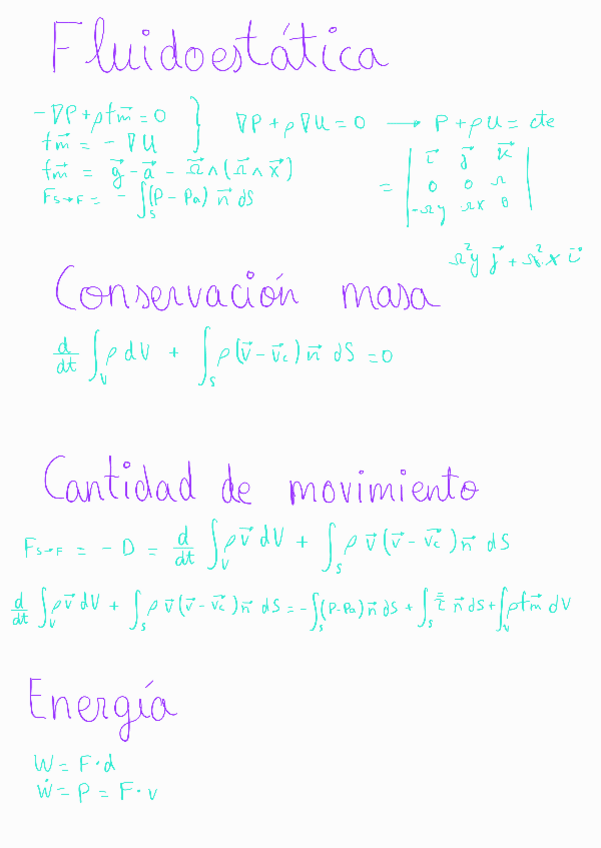 Fluidoestática
-∇P+ρf⃗m=0 } ∇P+ρ∇U=0 → P+ρU=cte
f⃗m = -∇U
f⃗m = g⃗ - a⃗ - Ω⃗∧(Ω⃗∧x⃗)
= | i⃗ j⃗ k⃗ |
| 0 0 Ω |
| -Ωy Ωx 0 |
F_{S→F} = -∫_S (P-Pa) n⃗ dS
Ω²y j⃗ + Ω²x i⃗
Conservación masa
d/dt ∫_V ρ dV + ∫_S ρ(v⃗-v⃗c) n⃗ dS = 0
Cantidad de movimiento
F_{S→F} = -D = d/dt ∫_V ρv⃗ dV + ∫_S ρ v⃗ (v⃗-v⃗c) n⃗ dS
d/dt ∫_V ρv⃗ dV + ∫_S ρ v⃗ (v⃗-v⃗c) n⃗ dS = -∫_S (P-Pa) n⃗ dS + ∫_S τ̿ n⃗ dS + ∫_V ρf⃗m dV
Energía
W = F·d
Ẇ = P = F·v